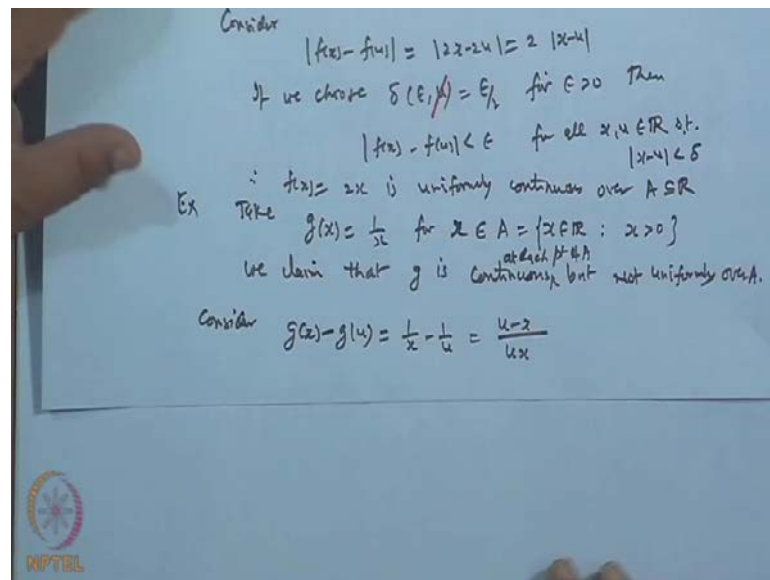 Consider
|f(x)-f(u)| = |2x-2u| = 2 |x-u|
If we choose δ(ε,u) = ε/2 for ε>0 Then
|f(x)-f(u)| < ε for all x,u ∈ ℝ s.t.
|x-u| < δ
∴ f(x) = 2x is uniformly continuous over A ⊆ ℝ
Ex Take g(x) = 1/x for x ∈ A = {x ∈ ℝ : x > 0}
we claim that g is continuous, at each pt of A but not uniformly over A.
Consider g(x)-g(u) = 1/x - 1/u = (u-x)/(ux)
NPTEL